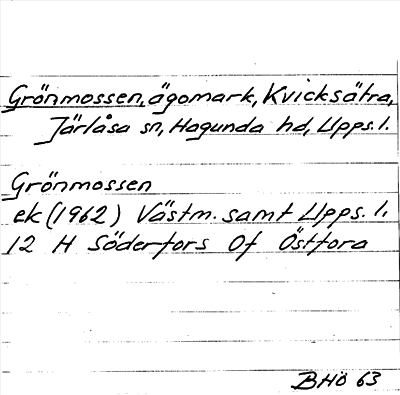 Grönmossen, ägomark, Kvicksätra,
Järlåsa sn, Hagunda hd, Upps. l.
Grönmossen
ek (1962) Västm. samt Upps. l.
12 H Söderfors Of Östfora
BHÖ 63